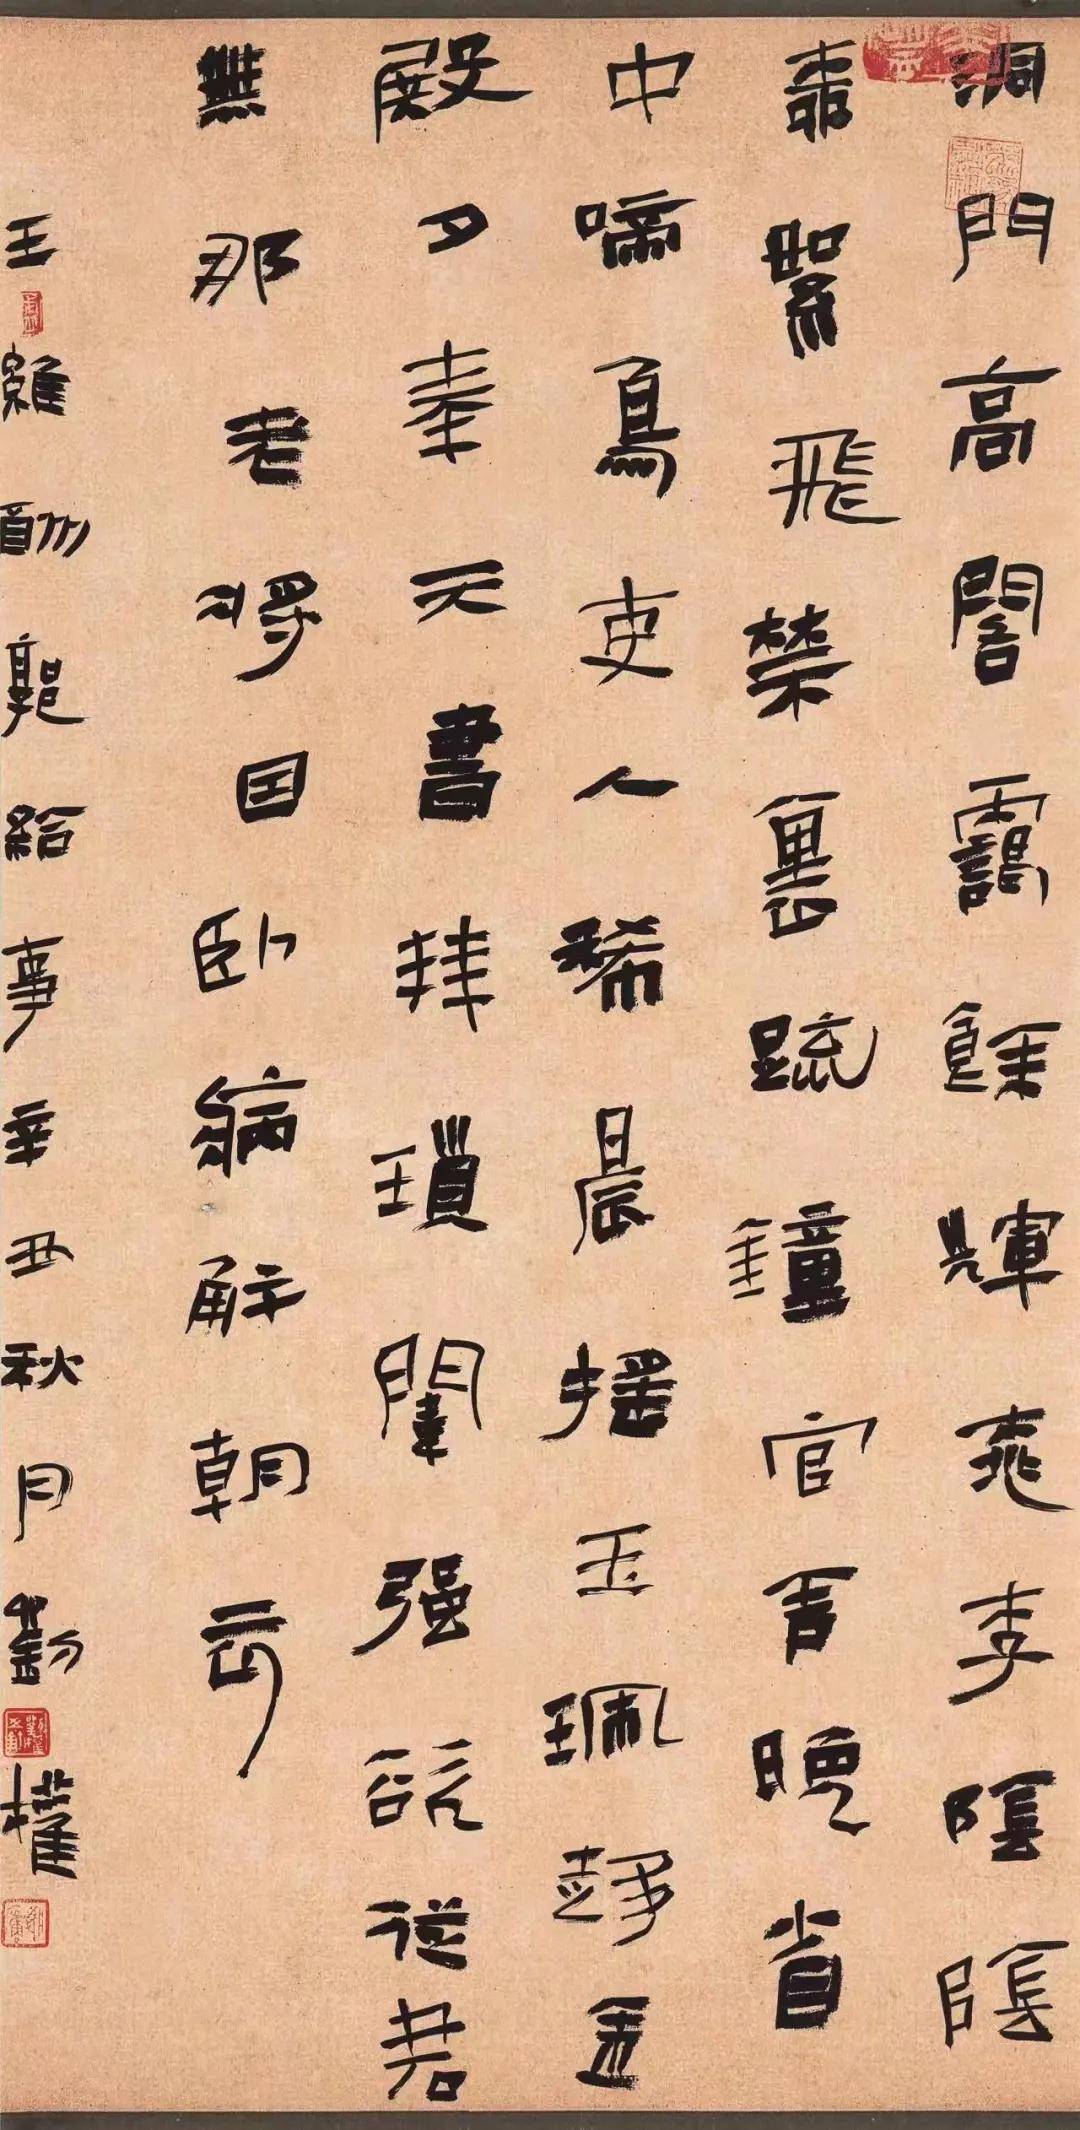 洞門高閣靄餘輝桃李陰陰
柳絮飛禁裏疏鐘官舍晚省
中啼鳥吏人稀晨搖玉珮趨金
殿夕奉天書拜瑣闈强欲從君
無那老將因卧病解朝衣
王維酬郭給事辛丑秋月劉權